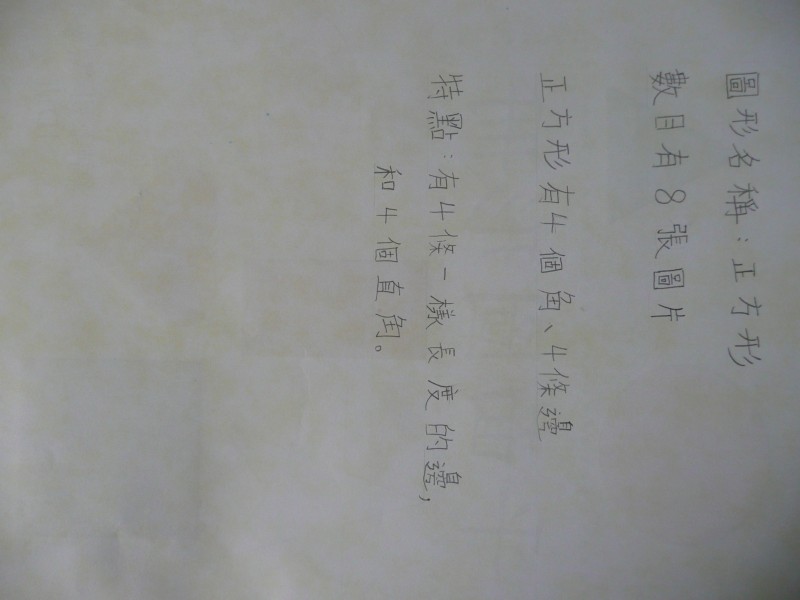 圖形名稱：正方形
數目有8張圖片
正方形有4個角、4條邊
特點：有4條一樣長度的邊，
和4個直角。